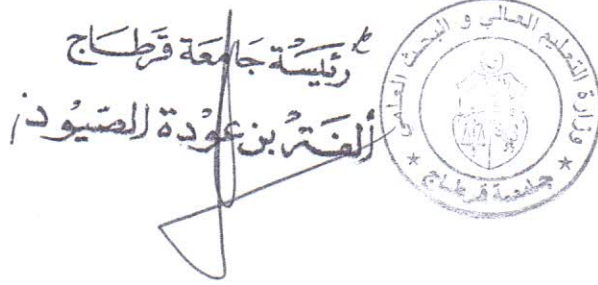 رئيسة جامعة قرطاج
ألفة بن عودة الصيود
وزارة التعليم العالي و البحث العلمي
جامعة قرطاج